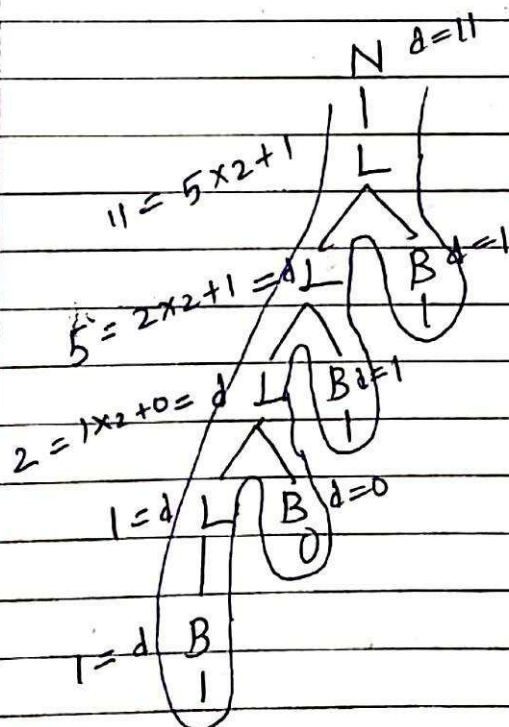 N d=11
L
11 = 5×2+1
5 = 2×2+1 = d L B d=1
1
2 = 1×2+0 = d L B d=1
1
1 = d L B d=0
0
1 = d B
1